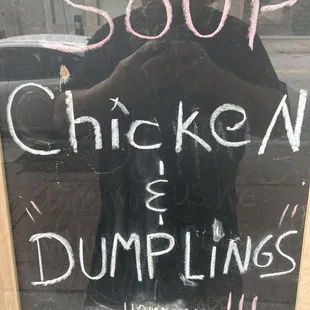 SOUP
ChickeN
&
DUMPLINGS
!!!